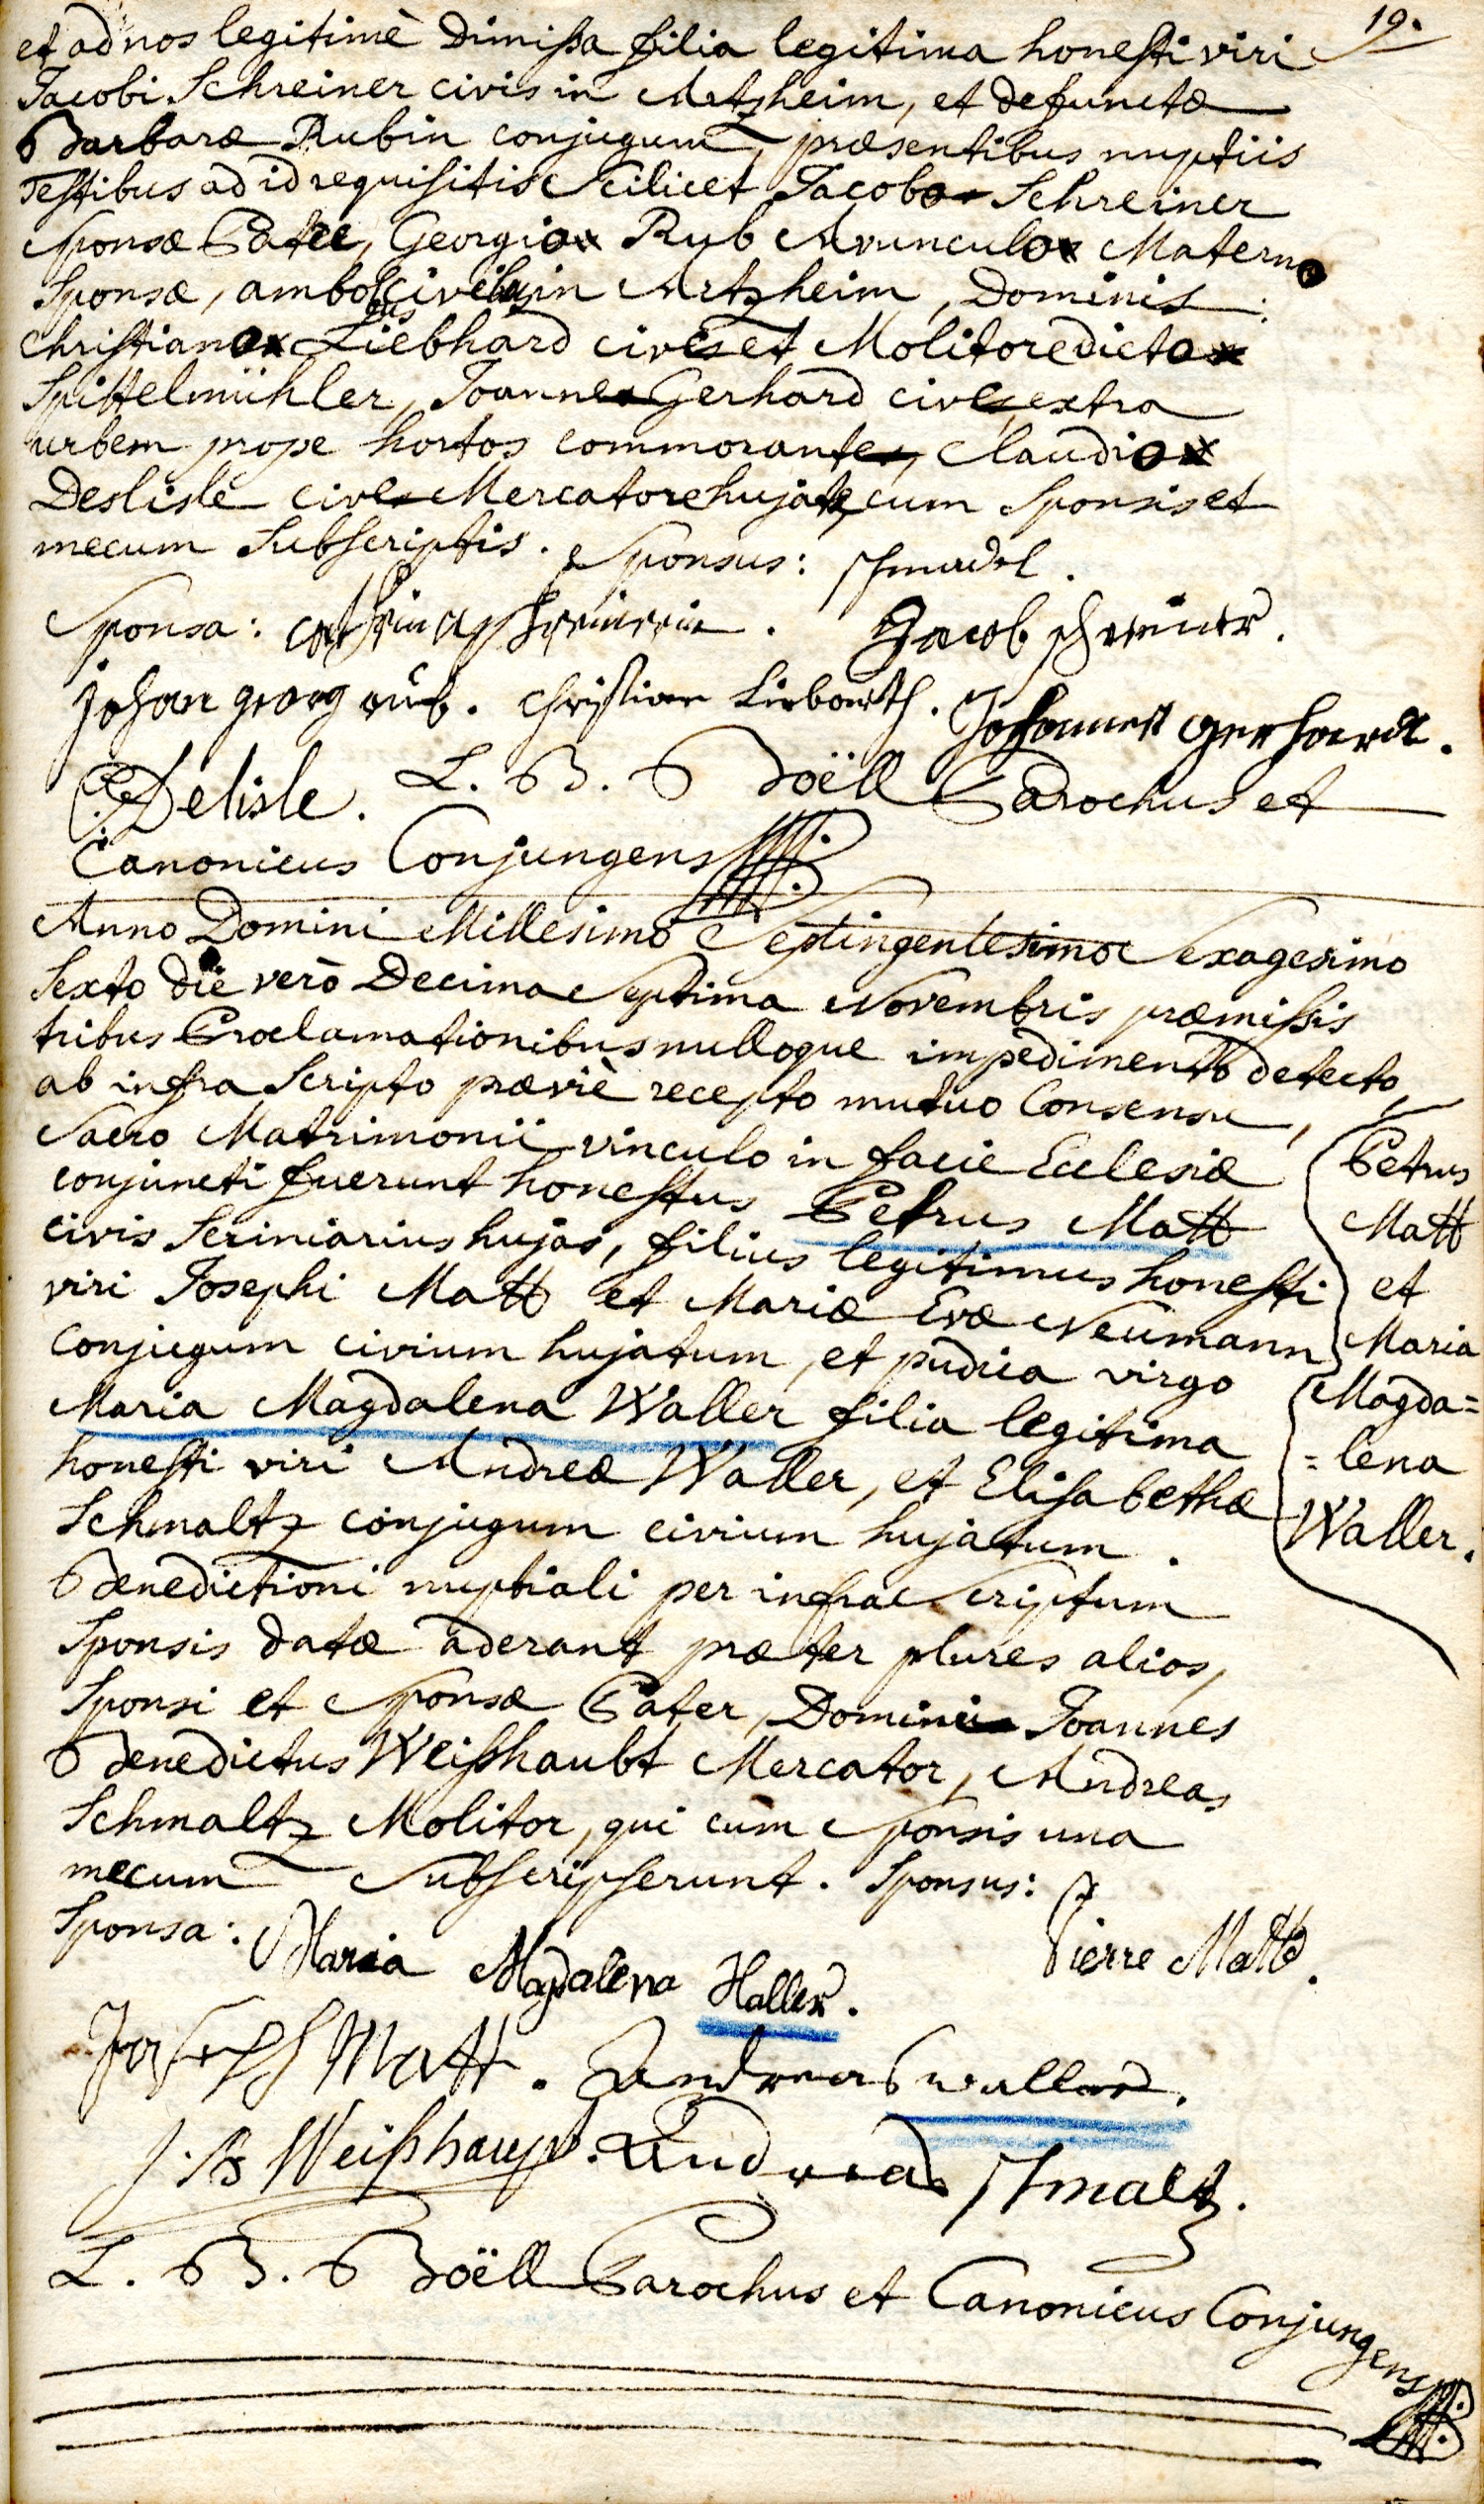 19.
et ad nos legitimè dimissa filia legitima honesti viri
Jacobi Schreiner civis in Artzheim, et defunctæ
Barbaræ Rubin conjugum, præsentibus nuptiis
Testibus ad id requisitis Scilicet Jacobo Schreiner
Sponsæ Patre, Georgio Rub Avunculo Materno
Sponsæ, ambobus civibus in Artzheim, Dominis
Christiano Liebhard cive et Molitore dicto
Spittelmühler, Joanne Gerhard cive, extra
urbem prope hortos commorante, Claudio
Deslisle cive Mercatore hujate, cum Sponsis et
mecum Subscriptis. Sponsus: schmadel.
Sponsa: schreinerin. Jacob schreiner.
johan georg rub. christian Liebarth. Johannes gerhardt.
Delisle. L. B. Boëll Parochus et
Canonicus Conjungens
Anno Domini Millesimo Septingentesimo Sexagesimo
Sexto die verò Decima Septima Novembris præmissis
tribus Proclamationibus nulloque impedimento detecto,
ab infra Scripto præviè recepto mutuo Consensu,
Sacro Matrimonii vinculo in facie Ecclesiæ
conjuncti fuerunt honestus Petrus Matt
civis Scriniarius hujas, filius legitimus honesti
viri Josephi Matt et Mariæ Evæ Neumann
conjugum civium hujatum, et pudica virgo
Maria Magdalena Waller filia legitima
honesti viri Andreæ Waller, et Elisabethæ
Schmaltz conjugum civium hujatum.
Benedictioni nuptiali per infra Scriptum
Sponsis datæ aderant præter plures alios,
Sponsi et Sponsæ Pater, Joannes
Benedictus Weisshaubt Mercator, Andreas
Schmaltz Molitor, qui cum Sponsis una
mecum Subscripserunt. Sponsus:
Pierre Matt.
Sponsa: Maria Magdalena Haller.
Joseph Matt. Andreas waller.
J. B Weißhaupt. Andreas schmaltz.
L. B. Boëll Parochus et Canonicus Conjungens
Petrus
Matt
et
Maria
Magda=
=lena
Waller.